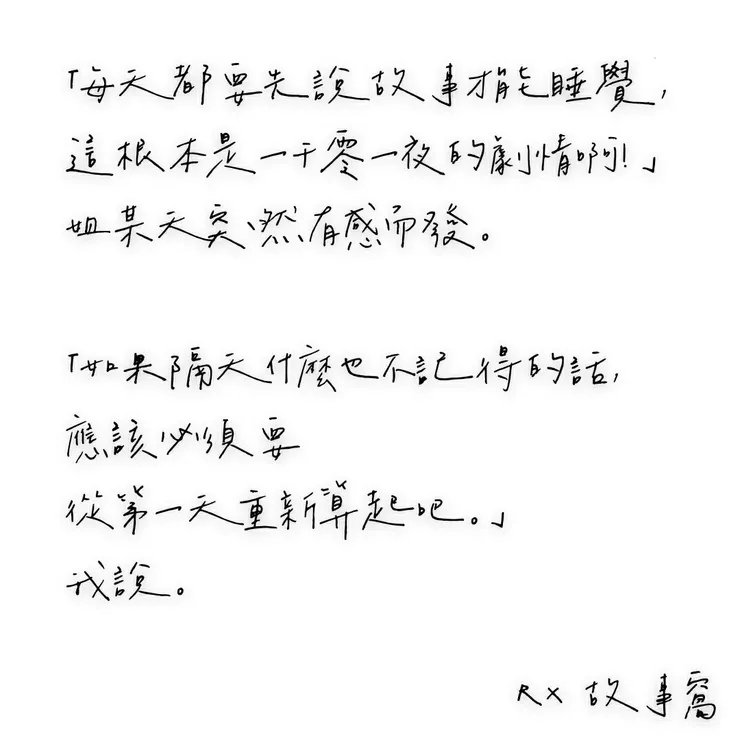 「每天都要先說故事才能睡覺,
這根本是一千零一夜的劇情啊!」
姐某天突然有感而發。
「如果隔天什麼也不記得的話,
應該必須要
從第一天重新算起吧。」
我說。
RX 故事窩